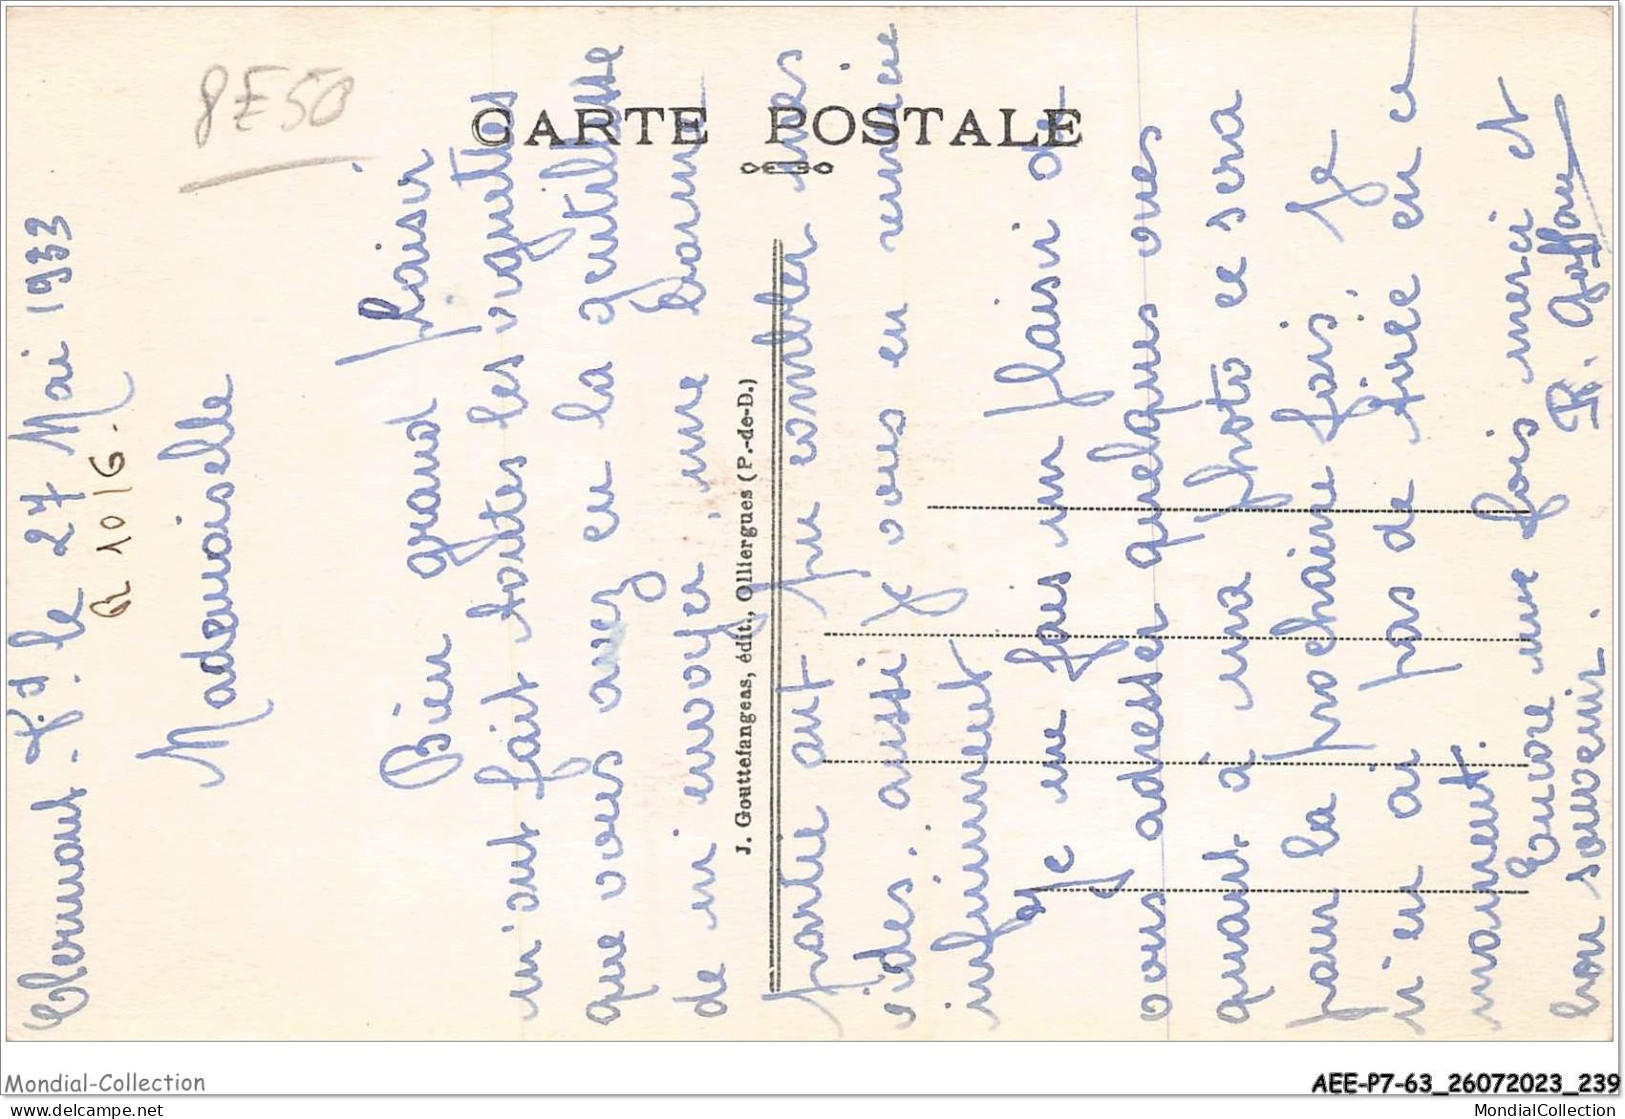 CARTE POSTALE
8E50
J. Gouttefangeas, édit., Olliergues (P.-de-D.)
Clermont. Fd. le 27 Mai 1933
R 10/6.
Mademoiselle
Bien grand plaisir
m'ont fait toutes les vignettes
que vous avez eu la gentillesse
de m'envoyer, une bonne
partie ont pu combler mes
vides. aussi je vous en remercie
infiniment
Je me fais un plaisir de
vous adresser quelques vues
quant à ma photo ce sera
pour la prochaine fois. Je
n'en ai pas de tirée en ce
moment.
Encore une fois merci et
bon souvenir. R.
Mondial-Collection
delcampe.net
AEE-P7-63_26072023_239
MondialCollection